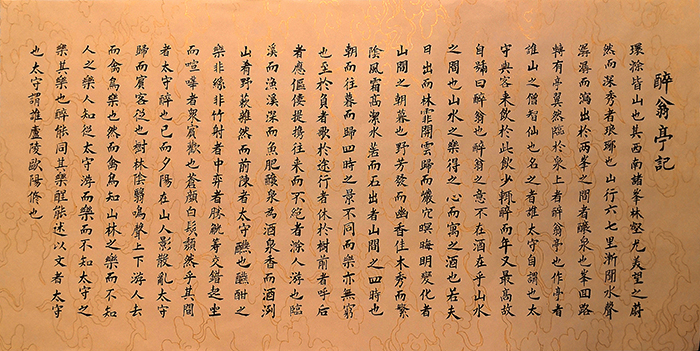 醉翁亭記
環滁皆山也其西南諸峯林壑尤美望之蔚
然而深秀者琅琊也山行六七里漸聞水聲
潺潺而瀉出於兩峯之間者釀泉也峯回路
轉有亭翼然臨於泉上者醉翁亭也作亭者
誰山之僧智仙也名之者誰太守自謂也太
守與客来飲於此飲少輒醉而年又最高故
自號曰醉翁也醉翁之意不在酒在乎山水
之間也山水之樂得之心而寓之酒也若夫
日出而林霏開雲歸而巖穴暝晦明變化者
山間之朝暮也野芳發而幽香佳木秀而繁
陰風霜高潔水落而石出者山間之四時也
朝而往暮而歸四時之景不同而樂亦無窮
也至於負者歌於途行者休於樹前者呼后
者應傴僂提攜往来而不絶者滁人游也臨
溪而漁溪深而魚肥釀泉為酒泉香而酒洌
山肴野蔌雜然而前陳者太守醼也醼酣之
樂非絲非竹射者中弈者勝觥籌交錯起坐
而喧嘩者衆賓歡也蒼顔白髮頹然乎其間
者太守醉也已而夕陽在山人影散亂太守
歸而賓客從也樹林陰翳鳴聲上下游人去
而禽鳥樂也然而禽鳥知山林之樂而不知
人之樂人知從太守游而樂而不知太守之
樂其樂也醉能同其樂醒能述以文者太守
也太守謂誰廬陵歐陽脩也